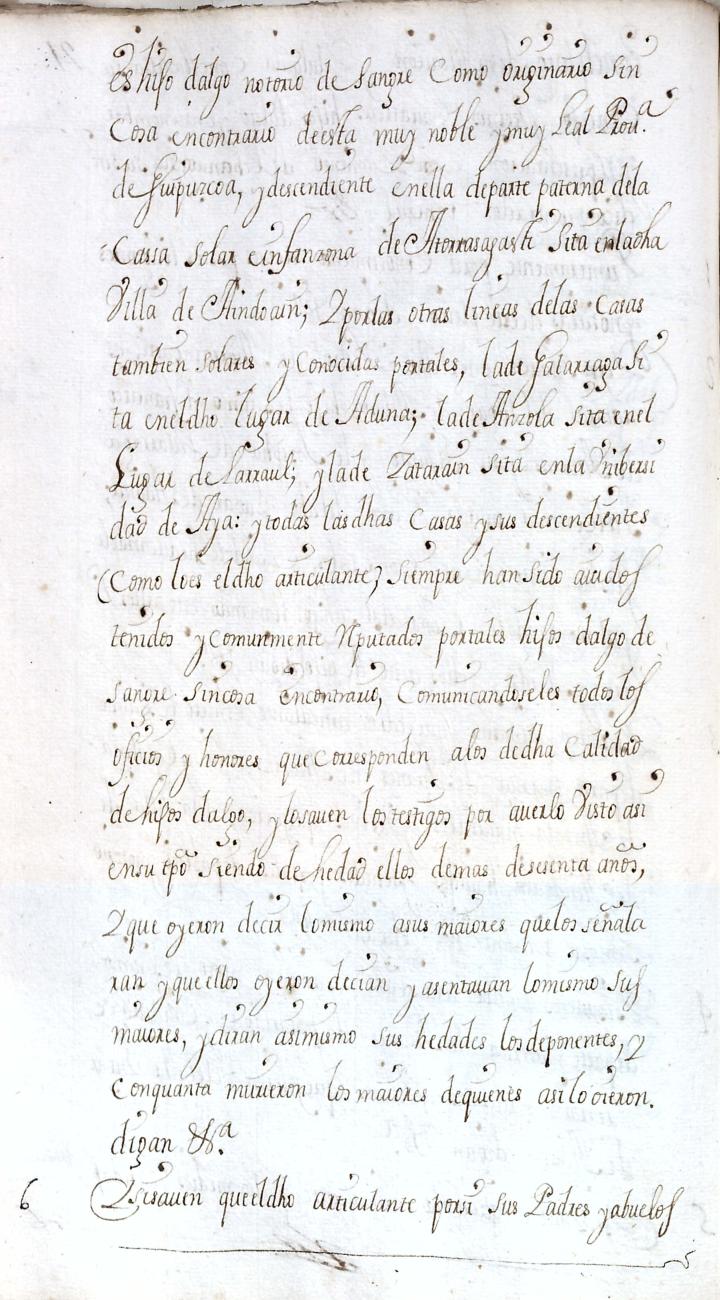 es hijo dalgo notorio de sangre Como originario sin
Cosa encontrario deesta muy noble y muy Leal Prou.ª
de Guipuzcoa, y descendiente enella departe paterna dela
Cassa solar einfanzona de Atorrasagasti sita enladha
Villa de Aindoain; Y porlas otras lineas delas Casas
tambien solares y Conocidas portales, lade Galarraga si
ta eneldho lugar de Aduna; lade Anzola sita enel
Lugar de Larraul; y lade Zatarain sita enla Vnibersi
dad de Aya: y todas lasdhas Casas y sus descendientes
(Como loes eldho articulante) siempre han sido auidos
tenidos y comunmente Rputados portales hijos dalgo de
sangre sincosa encontrario, Comunicandoseles todos los
oficios y honores que corresponden alos dedha Calidad
de hijos dalgo, y losauen los testigos por auerlo Visto asi
ensu tpō siendo de hedad ellos demas de sesenta años,
Y que oyeron decir lomismo asus maiores quelos señala
ran y que ellos oyeron decian y asentauan lomismo sus
maiores, y diran asimismo sus hedades los deponentes, y
Conquanta murieron los maiores dequienes asi lo oieron.
digan &.ª
6 Y sisauen queeldho articulante porsi sus Padres y abuelos